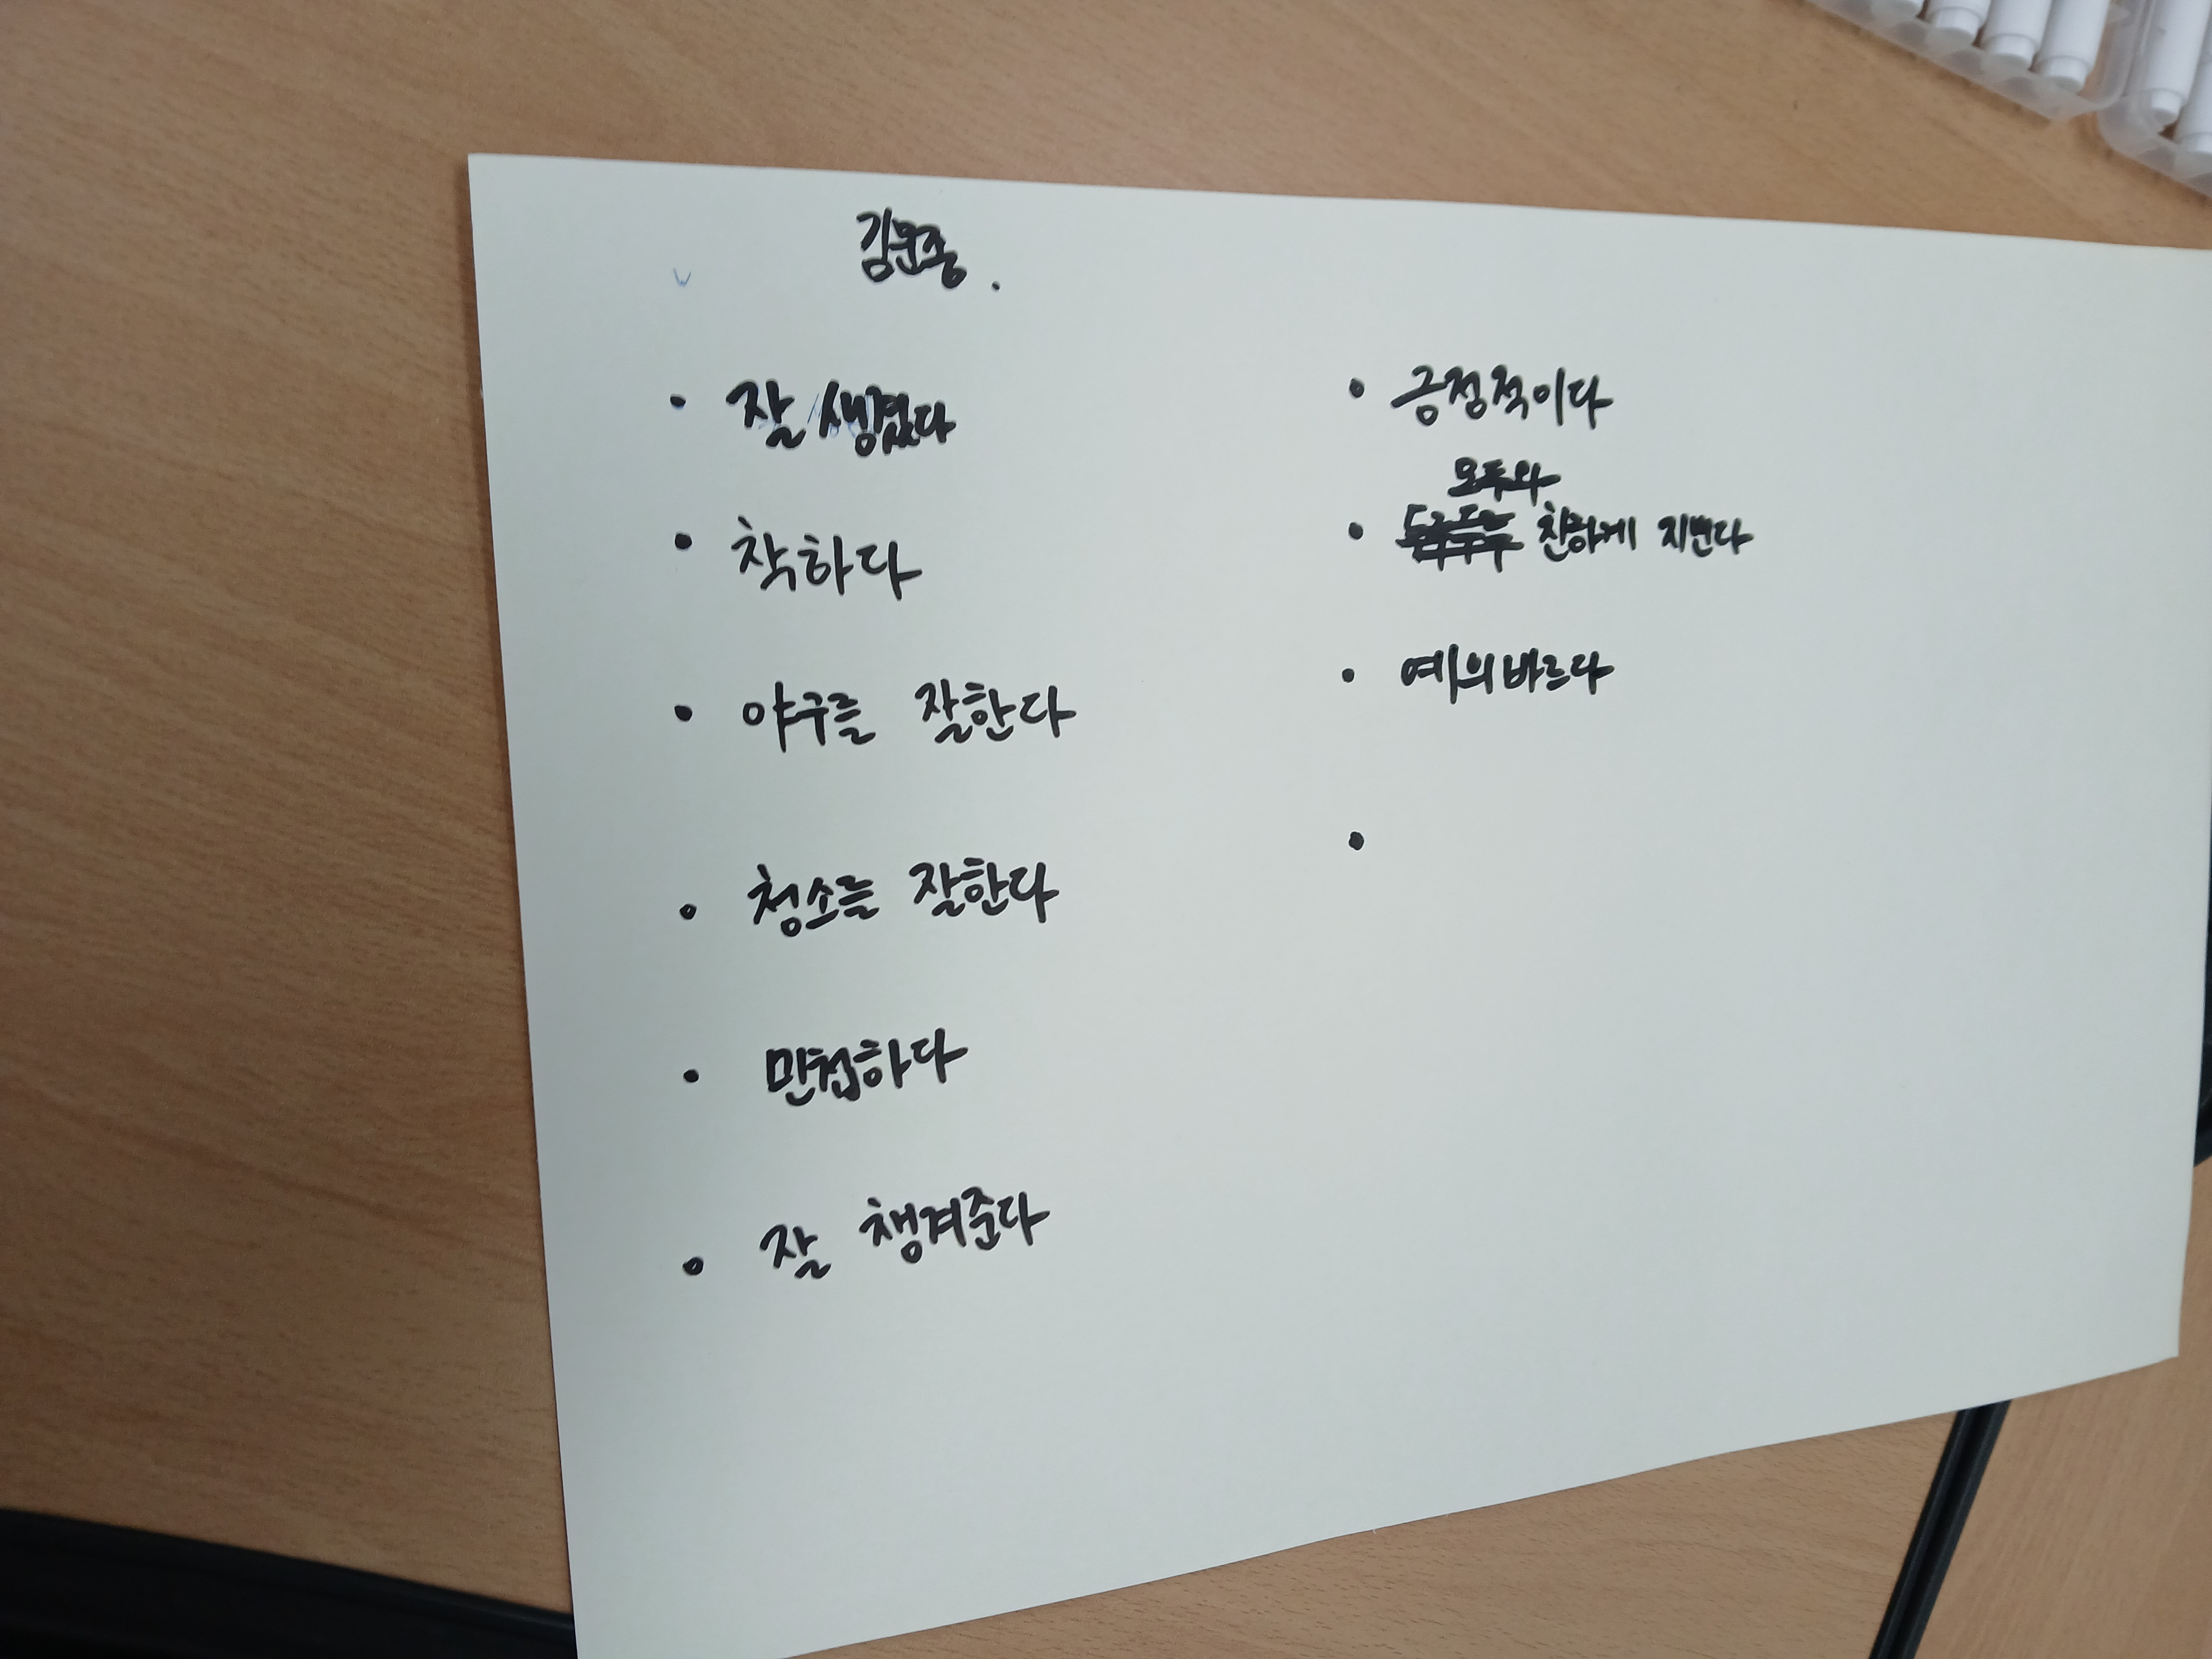 김문종.
• 잘생겼다
• 착하다
• 야구를 잘한다
• 청소를 잘한다
• 민첩하다
• 잘 챙겨준다
• 긍정적이다
모두와
• 친하게 지낸다
• 예의바르다
•